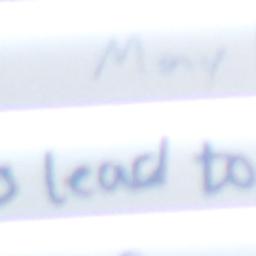 Many
lead to